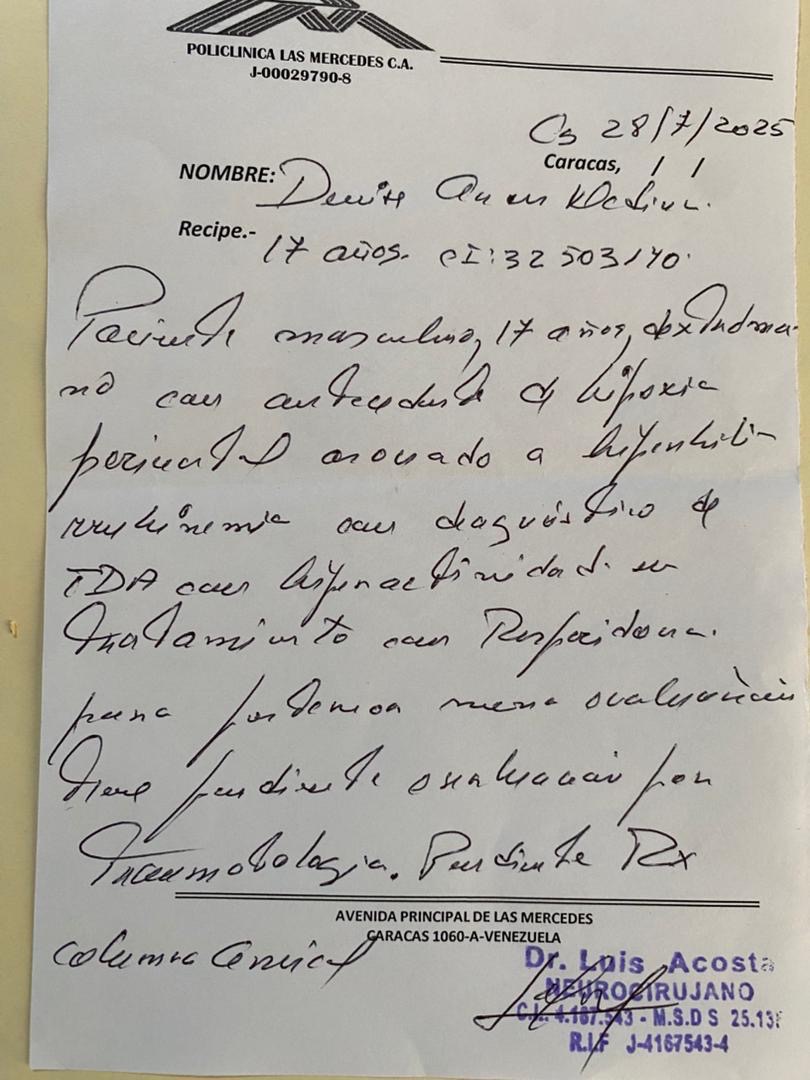 POLICLINICA LAS MERCEDES C.A.
J-00029790-8
Cs 28/7/2025
Caracas, / /
NOMBRE: Denise
Recipe.- 17 años. CI: 32 503140.
Paciente masculino, 17 años,
con antecedente de hipoxia
perinatal asociado a
con diagnóstico de
TDA con hiperactividad en
tratamiento con Risperidona.
para nueva evaluación
tiene pendiente evaluación por
Traumatologia. Pendiente Rx
AVENIDA PRINCIPAL DE LAS MERCEDES
CARACAS 1060-A-VENEZUELA
columna Cervical
Dr. Luis Acosta
NEUROCIRUJANO
C.I. 4.167.543 - M.S.D S 25.13
R.I.F J-4167543-4